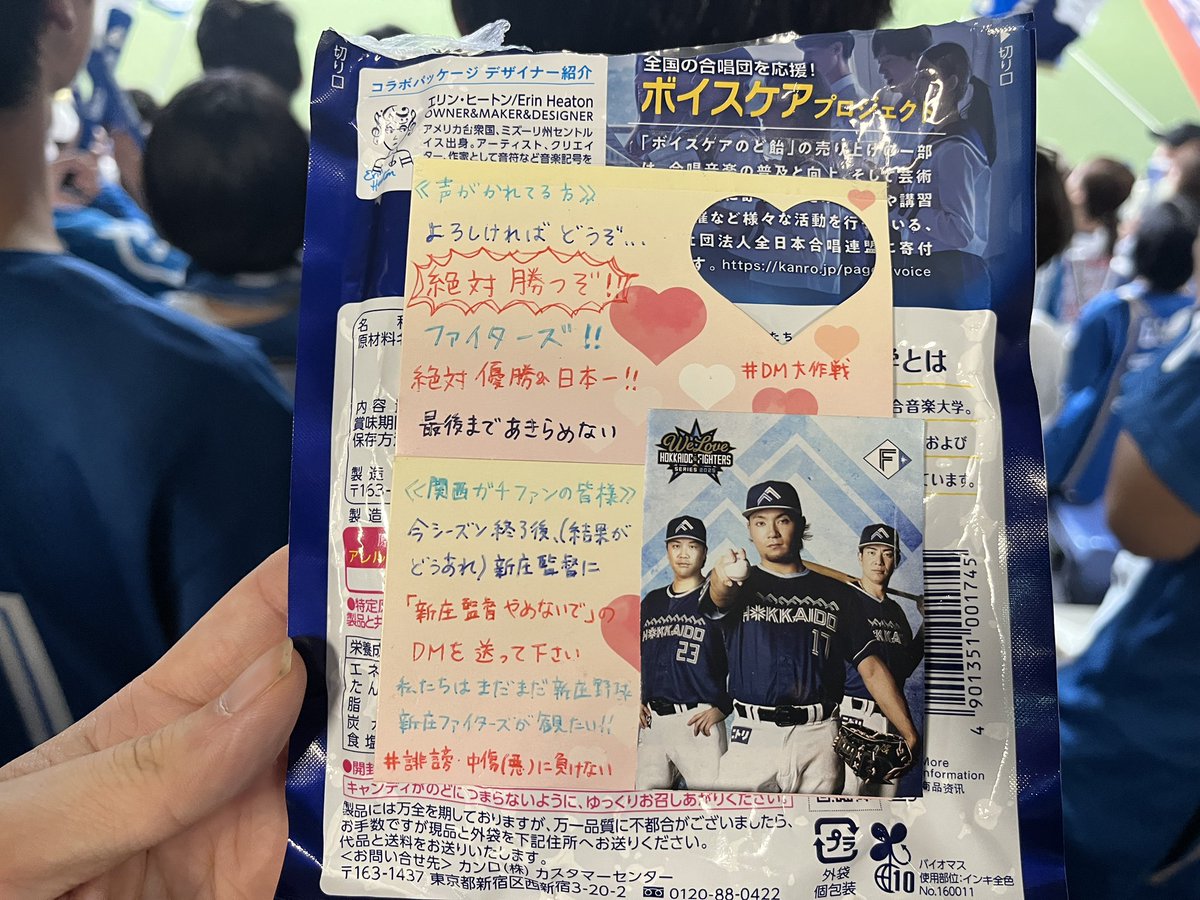 切り口
コラボパッケージ デザイナー紹介
エリン・ヒートン/Erin Heaton
OWNER&MAKER&DESIGNER
アメリカ合衆国、ミズーリ州セントル
イス出身。アーティスト、クリエイ
ター、作家として音符など音楽記号を
全国の合唱団を応援!
ボイスケアプロジェクト
切り口
「ボイスケアのど飴」の売り上げの一部
は、合唱音楽の普及と向上、そして芸術
や講習
催など様々な活動を行っている、
社団法人全日本合唱連盟に寄付
す。https://kanro.jp/page voice
≪声がかれてる方≫
よろしければ どうぞ...
絶対 勝つぞ!!
ファイターズ!!
絶対 優勝&日本一!!
最後まであきらめない
#DM大作戦
≪関西ガチファンの皆様≫
今シーズン終了後、(結果が
どうあれ) 新庄監督に
「新庄監督やめないで」の
DMを 送って下さい
私たちは まだまだ 新庄野球
新庄ファイターズが 観たい!!
#誹謗・中傷(悪)に負けない
We Love
HOKKAIDO FIGHTERS
SERIES 2025
F
HOKKAIDO
23
HOKKAIDO
17
HOKKA
ニトリ
名
原材料
内容
賞味期
保存方
製造
〒163-
製造
アレル
●特定
製品と
栄養成
エネ
たん
脂
炭水
食塩
とは
合音楽大学。
および
ています。
4 901351 001745
More
Information
商品资讯
●開封
キャンディがのどにつまらないように、ゆっくりお召しあがりください。
製品には万全を期しておりますが、万一品質に不都合がございましたら、
お手数ですが現品と外袋を下記住所へお送りください。
代品と送料をお送りいたします。
<お問い合せ先> カンロ(株) カスタマーセンター
〒163-1437 東京都新宿区西新宿3-20-2 0120-88-0422
プラ
外袋
個包装
バイオマス
10
使用部位:インキ全色
No.160011